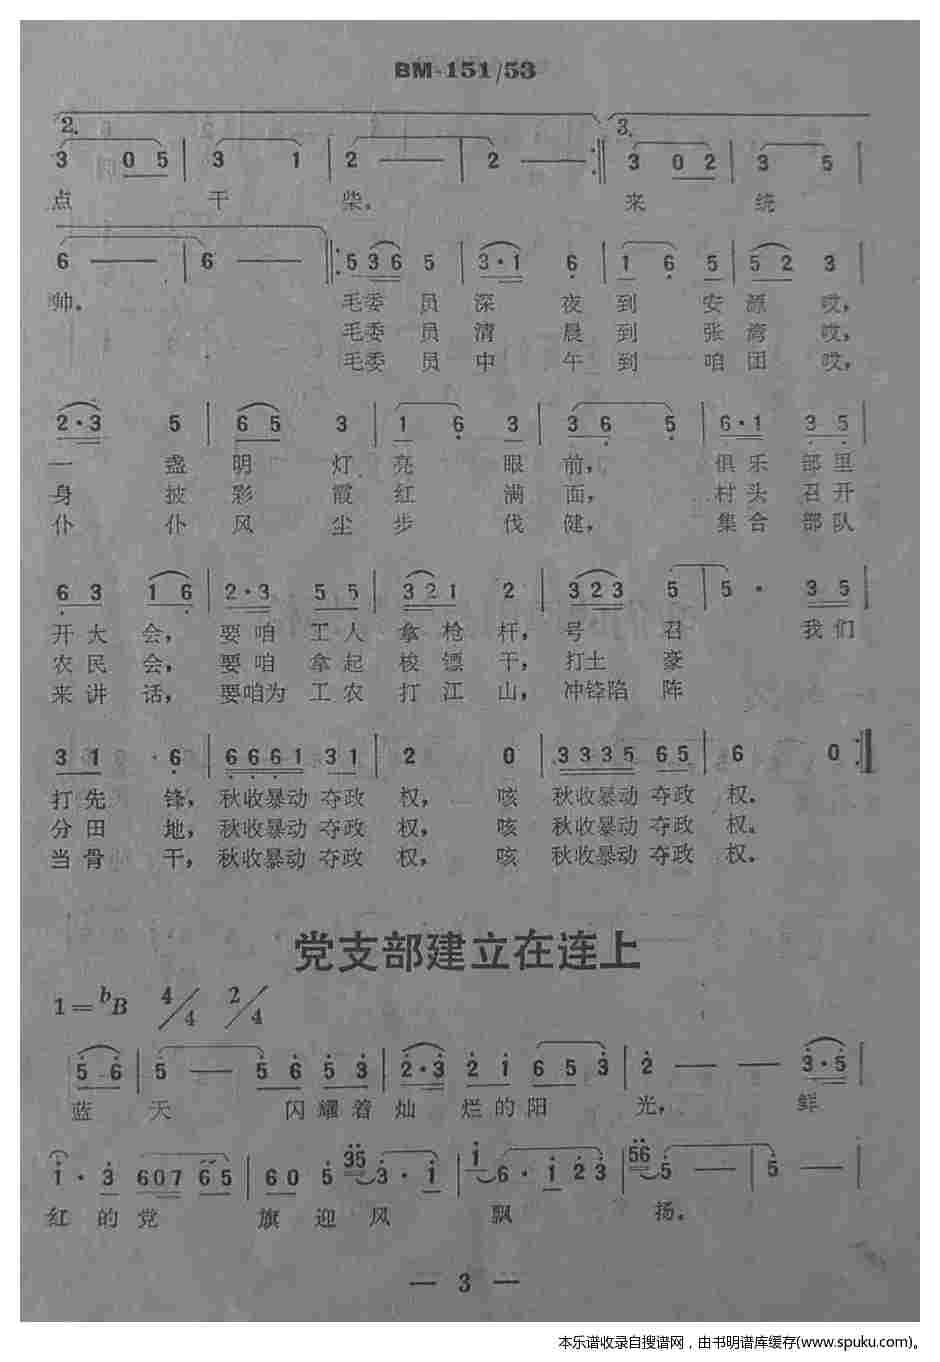 BM-151/53
2.
3.
3 0 5 | 3 1 | 2 — | 2 — :| 3 0 2 | 3 5
点 干 柴。 来 统
6 — | 6 — |: 5 3 6 5 | 3·1 6 | 1 6 5 | 5 2 3
帅。 毛委 员 深 夜 到 安 源 哎，
毛委 员 清 晨 到 张 湾 哎，
毛委 员 中 午 到 咱 团 哎，
2·3 5 | 6 5 3 | 1 6 2 | 3 6 5 | 6·1 3 5
一 盏 明 灯 亮 眼 前， 俱 乐 部 里
身 披 彩 霞 红 满 面， 村 头 召 开
仆 仆 风 尘 步 伐 健， 集 合 部 队
6 3 1 6 | 2·3 5 5 | 3 2 1 2 | 3 2 3 5 | 5 · 3 5
开 大 会， 要 咱 工 人 拿 枪 杆， 号 召 我 们
农 民 会， 要 咱 拿 起 梭 镖 干， 打 土 豪
来 讲 话， 要咱为 工 农 打 江 山， 冲锋陷 阵
3 1 · 6 | 6 6 6 1 3 1 | 2 0 | 3 3 3 5 6 5 | 6 0 :|
打 先 锋， 秋收暴动 夺政 权， 咳 秋收暴动 夺政 权。
分 田 地， 秋收暴动 夺政 权， 咳 秋收暴动 夺政 权。
当 骨 干， 秋收暴动 夺政 权， 咳 秋收暴动 夺政 权。
党支部建立在连上
1=ᵇB 4/4 2/4
5·6 | 5 — 5 6 5 3 | 2·3 2 1 6 5 3 | 2 — — 3·5
蓝 天 闪 耀 着 灿 烂 的 阳 光， 鲜
1 · 3 6 0 7 6 5 | 6 0 5 35 3 · 1 | 1 6·1 2 3 | 56 5 — | 5 —
红 的 党 旗 迎 风 飘 扬。
— 3 —
本乐谱收录自搜谱网，由书明谱库缓存(www.spuku.com)。